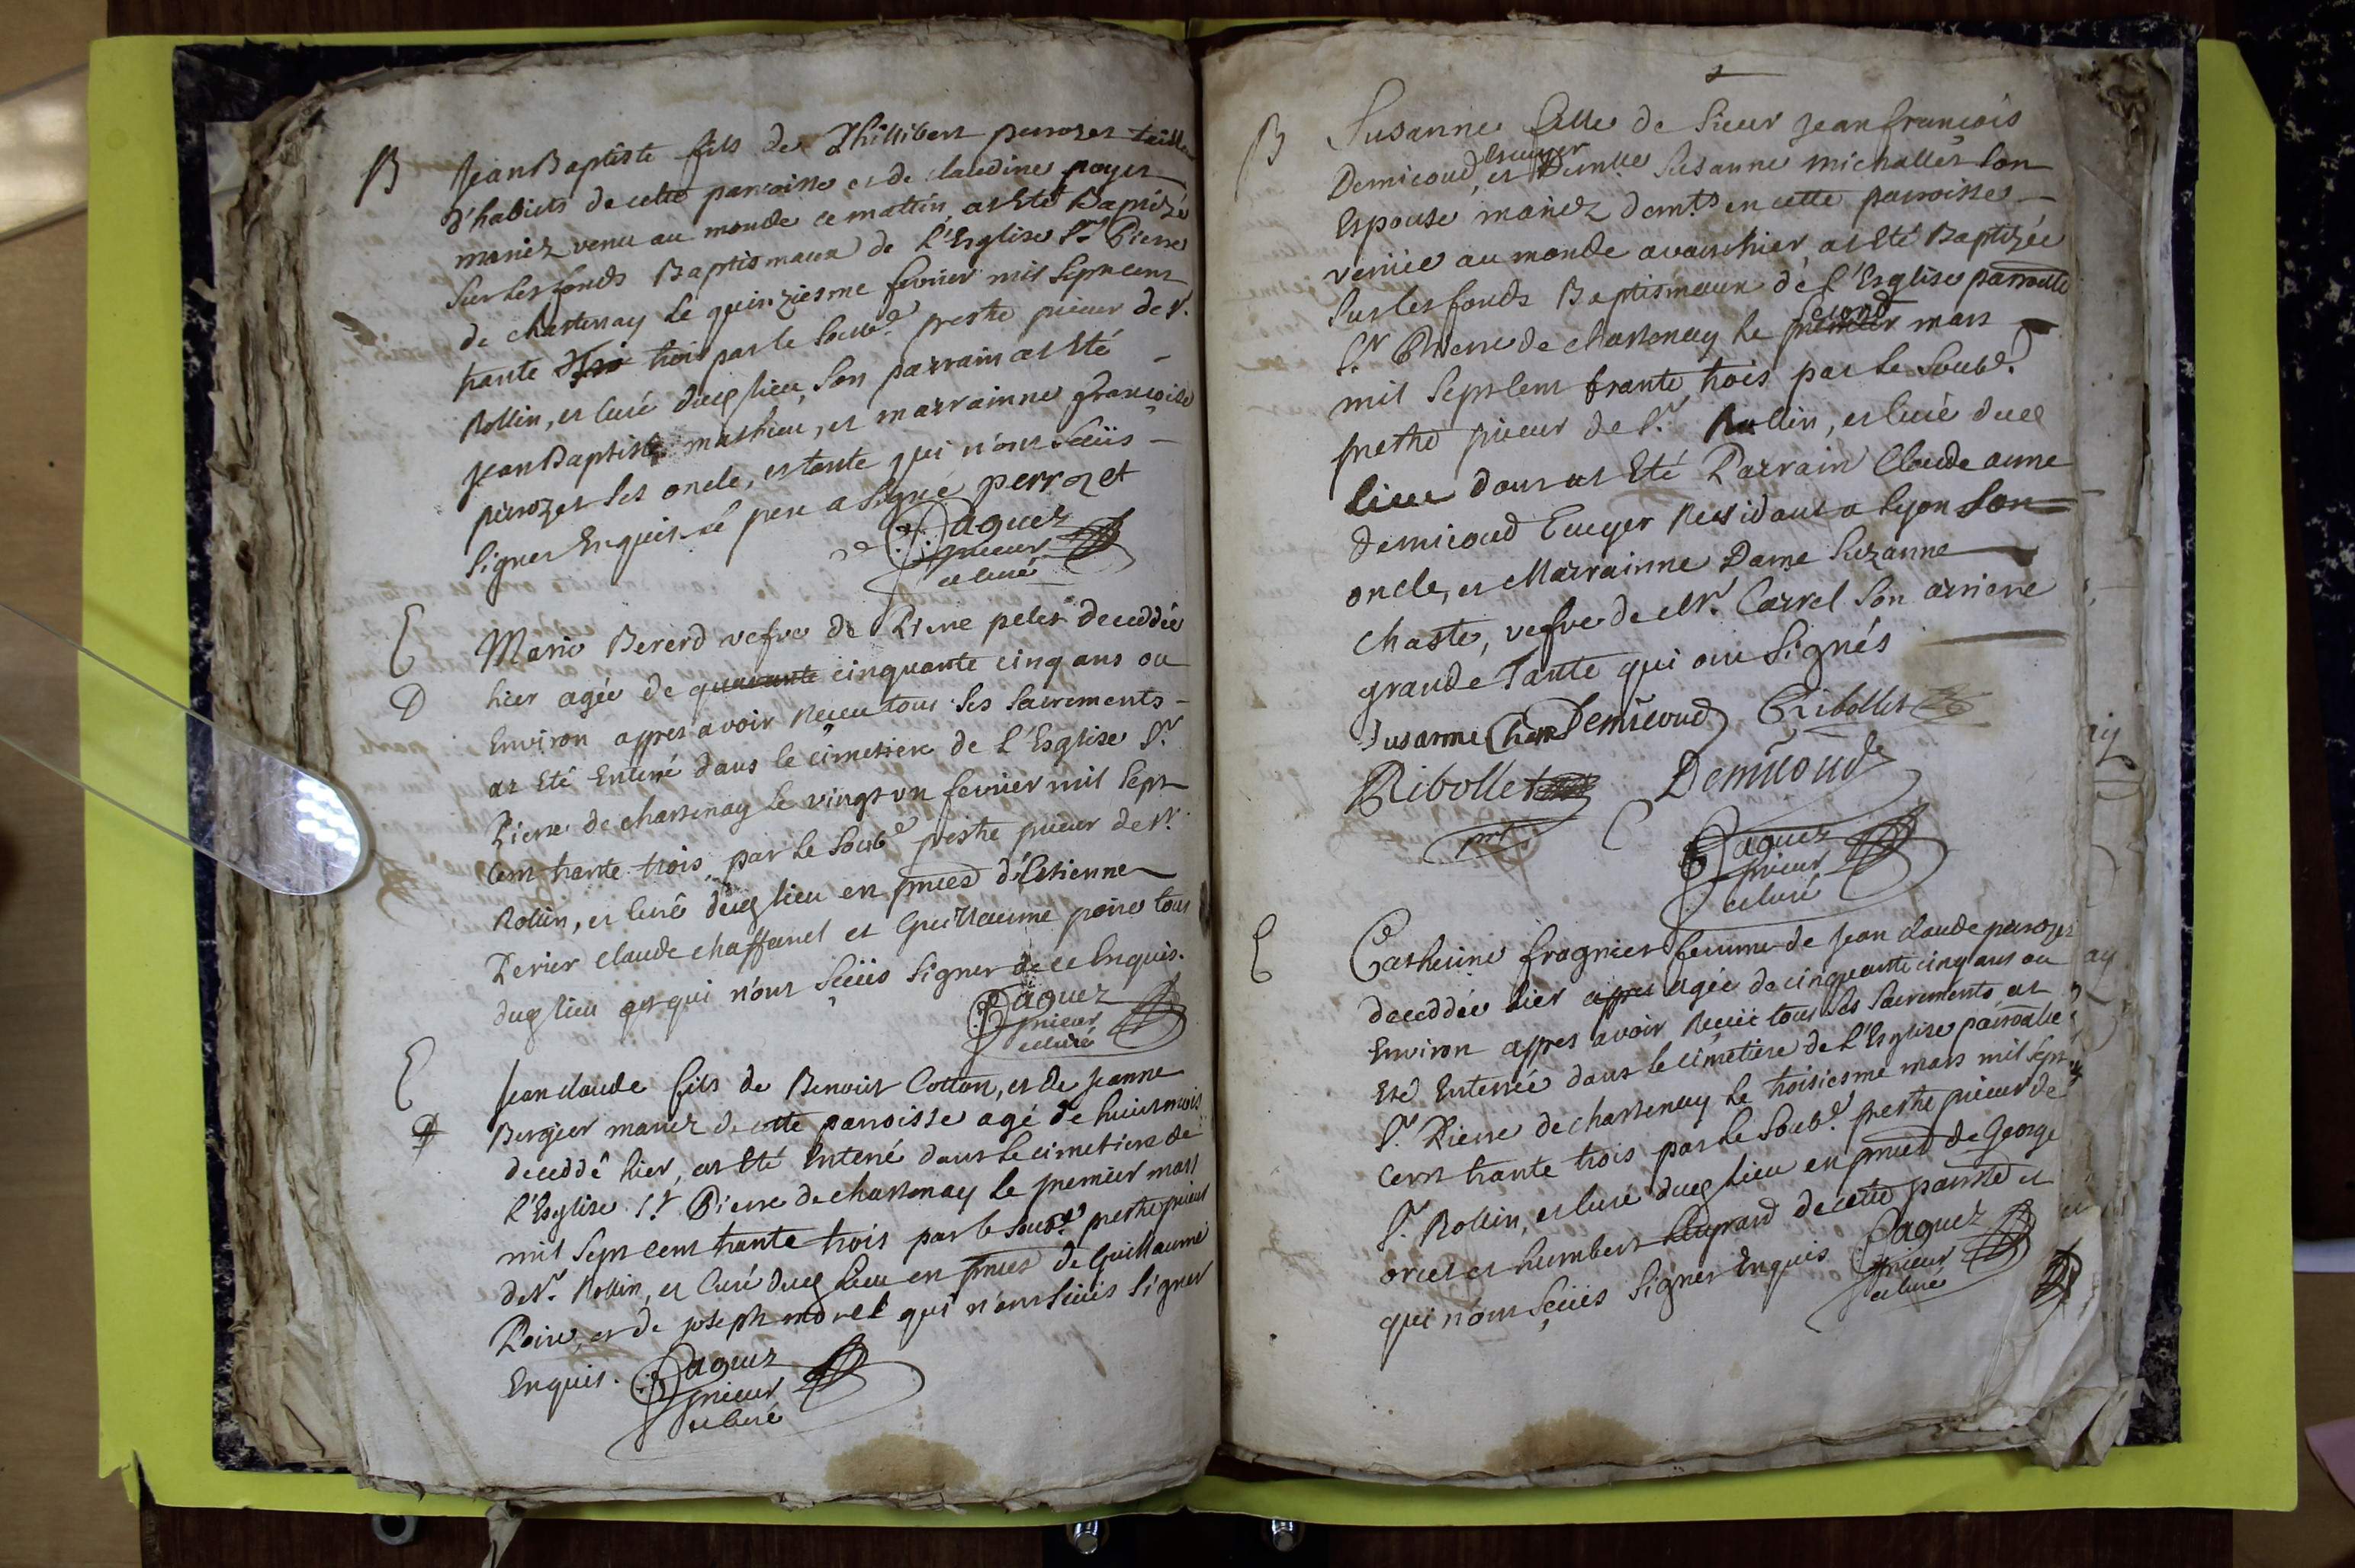 B
Jean Baptiste fils de Phillibert perrozet taille
d'habits de cette parroisse et de claudine poyet
mariez venu au monde ce mattin, at Eté Baptizé
sur les fonds Baptismaux de L'Esglise St. Pierre
de chastenay le quinziesme fevrier mil sept cent
trante trois par le soub.é prestre prieur de St.
Rollin, et curé dud lieu, son parrain at Eté
Jean Baptiste mathieu, et marrainne françoise
perrozet ses oncle, et tante qui n'ont sceüs
signer Enquis le pere a signé perrozet
Paquez
prieur
et curé
E
D
Marie Bererd vefve de Pierre pelet deceddée
hier agée de quarante cinquante cinq ans ou
Environ appres avoir Receu tous ses sacrements
at Eté Enterré dans le cimetiere de L'Esglise St.
Pierre de chastenay le vingt un fevrier mil sept
cent trante trois par le soub.é prestre prieur de St.
Rollin, et curé dud lieu en pnces d'Estienne
Perier claude chaffanel et Guillaume poire tous
dud lieu et qui n'ont sceüs signer de ce Enquis.
Paquez
prieur
et curé
E
D
Jean claude fils de Benoist Cotton, et de Jeanne
Bergier mariez de cette parroisse agé de huict mois
deceddé hier, at Eté Enterré dans le cimetiere de
L'Esglise St Pierre de chastenay le premier mars
mil sept cent trante trois par le soub.é prestre prieur
de St. Rollin, et curé dud lieu en pnces de Guillaume
Poire, et de joseph morel qui n'ont sceüs signer
Enquis.
Paquez
prieur
et curé
B
Susanne fille de sieur Jean françois
Escuyer
Demicoud, et Demlle Susanne michallet son
Espouse mariez demts en cette parroisse
venüe au monde avanthier, at Eté Baptizée
sur les fonds Baptismaux de L'Esglise parroalle
second
St. Pierre de chastenay le premier mars
mil sept cent trante trois par le soub.é
prestre prieur de St. Rollin, et curé dud
lieu dont at Eté Parrain Claude anne
Demicoud Escuyer Residant a Lyon son
oncle, et Marrainne Dame Suzanne
Chaste, vefve de Mr. Carrel son arriere
grande Tante qui ont signés
Susanne Demicoud Ribollet
Ribollet Demicoud
Paquez
prieur
et curé
E
Catherine fragnier femme de Jean claude perrozet
deceddée hier appres agée de cinquante cinq ans ou
Environ appres avoir Receüe tous ses sacrements, at
Eté Enterrée dans le cimetiere de L'Esglise parroalle
St. Pierre de chastenay le troisiesme mars mil sept
cent trante trois par le soub.é prestre prieur de
St. Rollin, et curé dud lieu en pnces de George
oriet et humbert de cette parroisse et
qui n'ont sceüs signer Enquis
Paquez
prieur
et curé